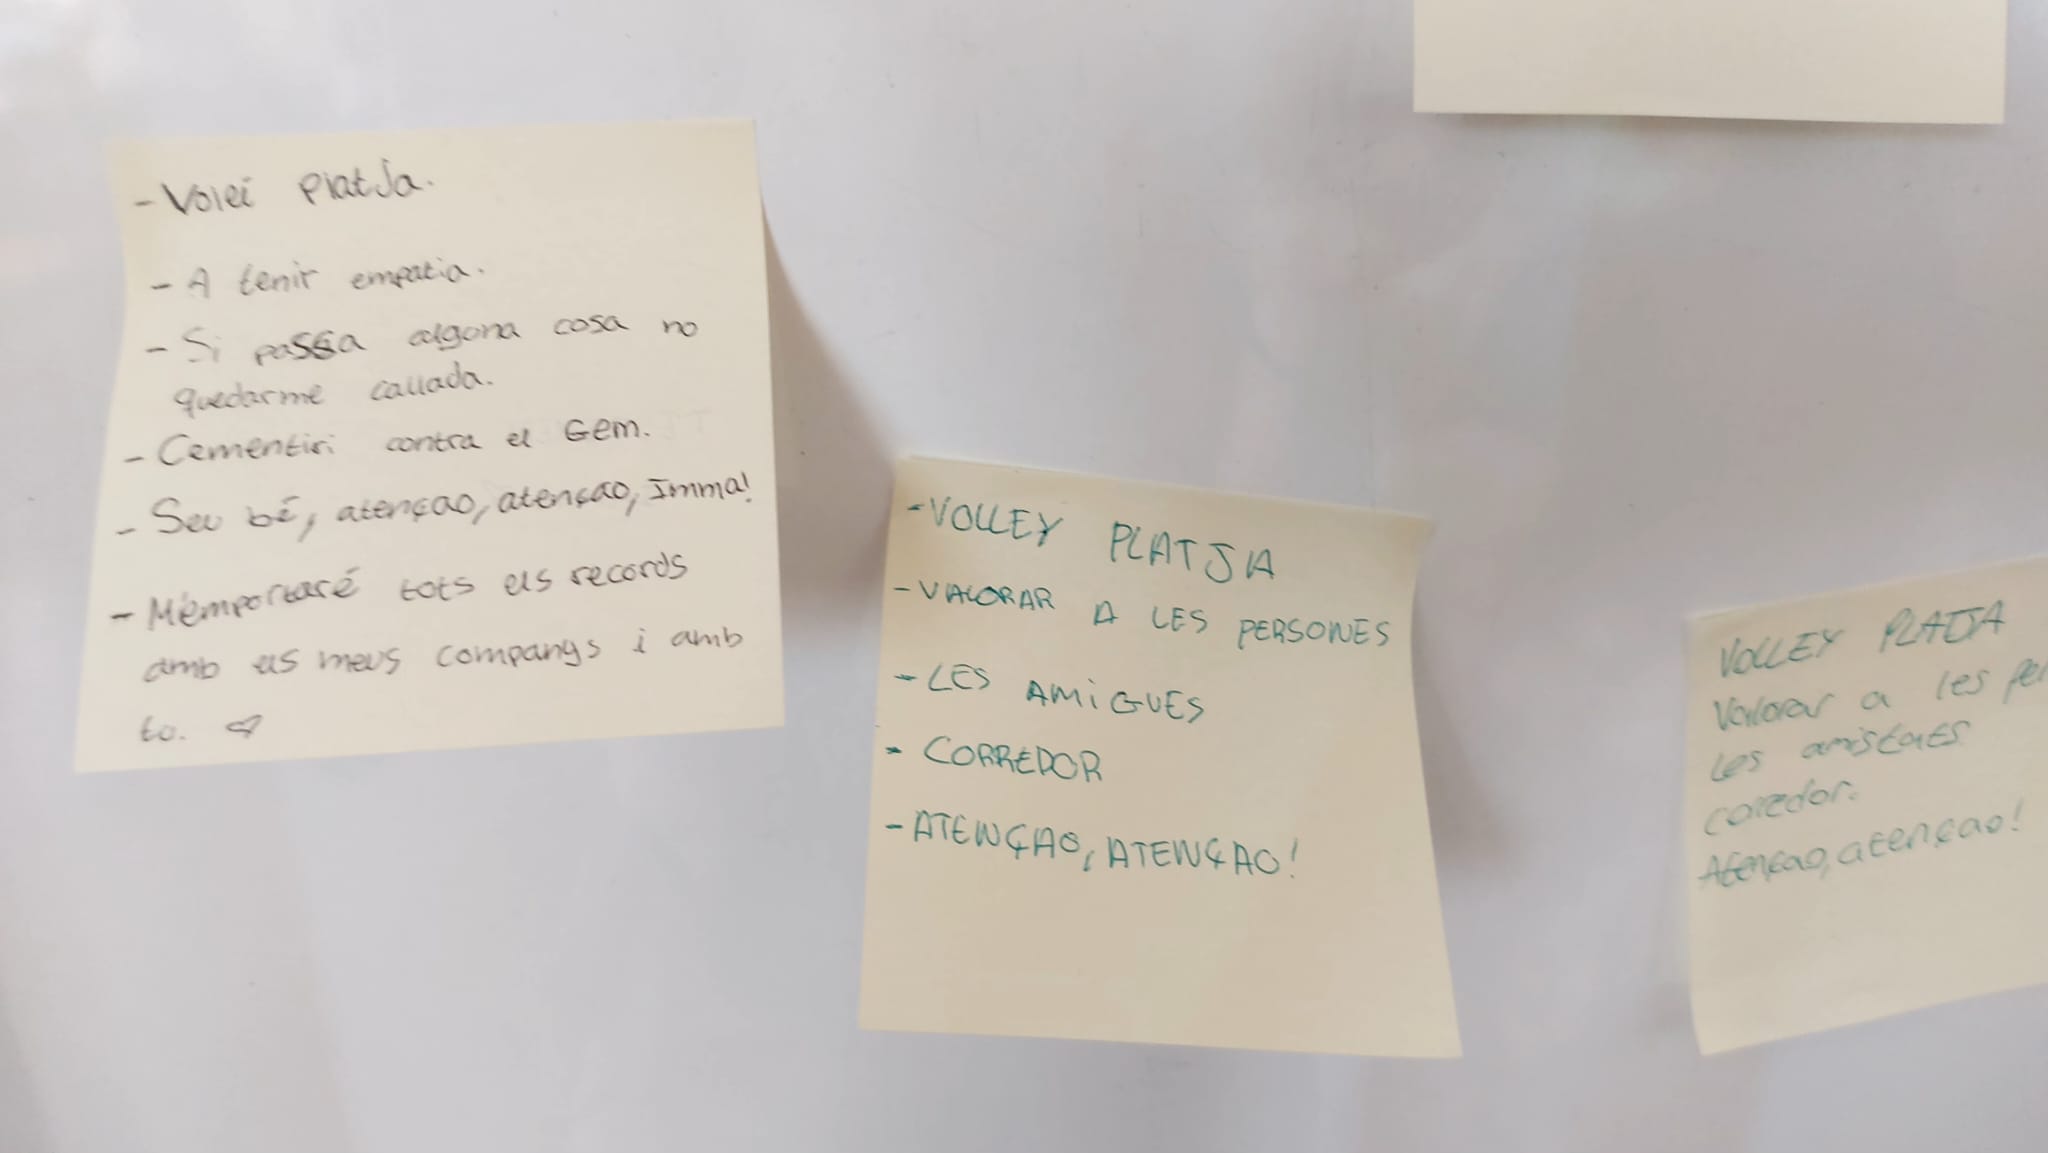 - Volei platja.
- A tenir empatia.
- Si passa alguna cosa no
quedarme callada.
- Cementiri contra el Gem.
- Seu bé, atençao, atençao, Imma!
- M'emportaré tots els records
amb els meus companys i amb
tu. ♡
- VOLLEY PLATJA
- VALORAR A LES PERSONES
- LES AMIGUES
- CORREDOR
- ATENÇAO, ATENÇAO!
VOLLEY PLATJA
Valorar a les per
Les amistats
corredor.
Atençao, atençao!